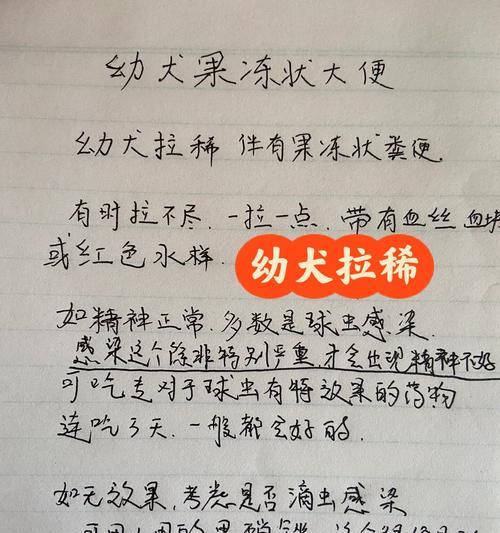 幼犬果冻状大便
幼犬拉稀 伴有果冻状粪便.
有时拉不尽.一拉一点.带有血丝 血块
或红色水样.
幼犬拉稀
如精神正常.多数是球虫感染.
感染这个除非特别严重.才会出现精神不好
可吃专对于球虫有特效果的药物
连吃3天.一般都会好的.
如无效果,考虑是否滴虫感染